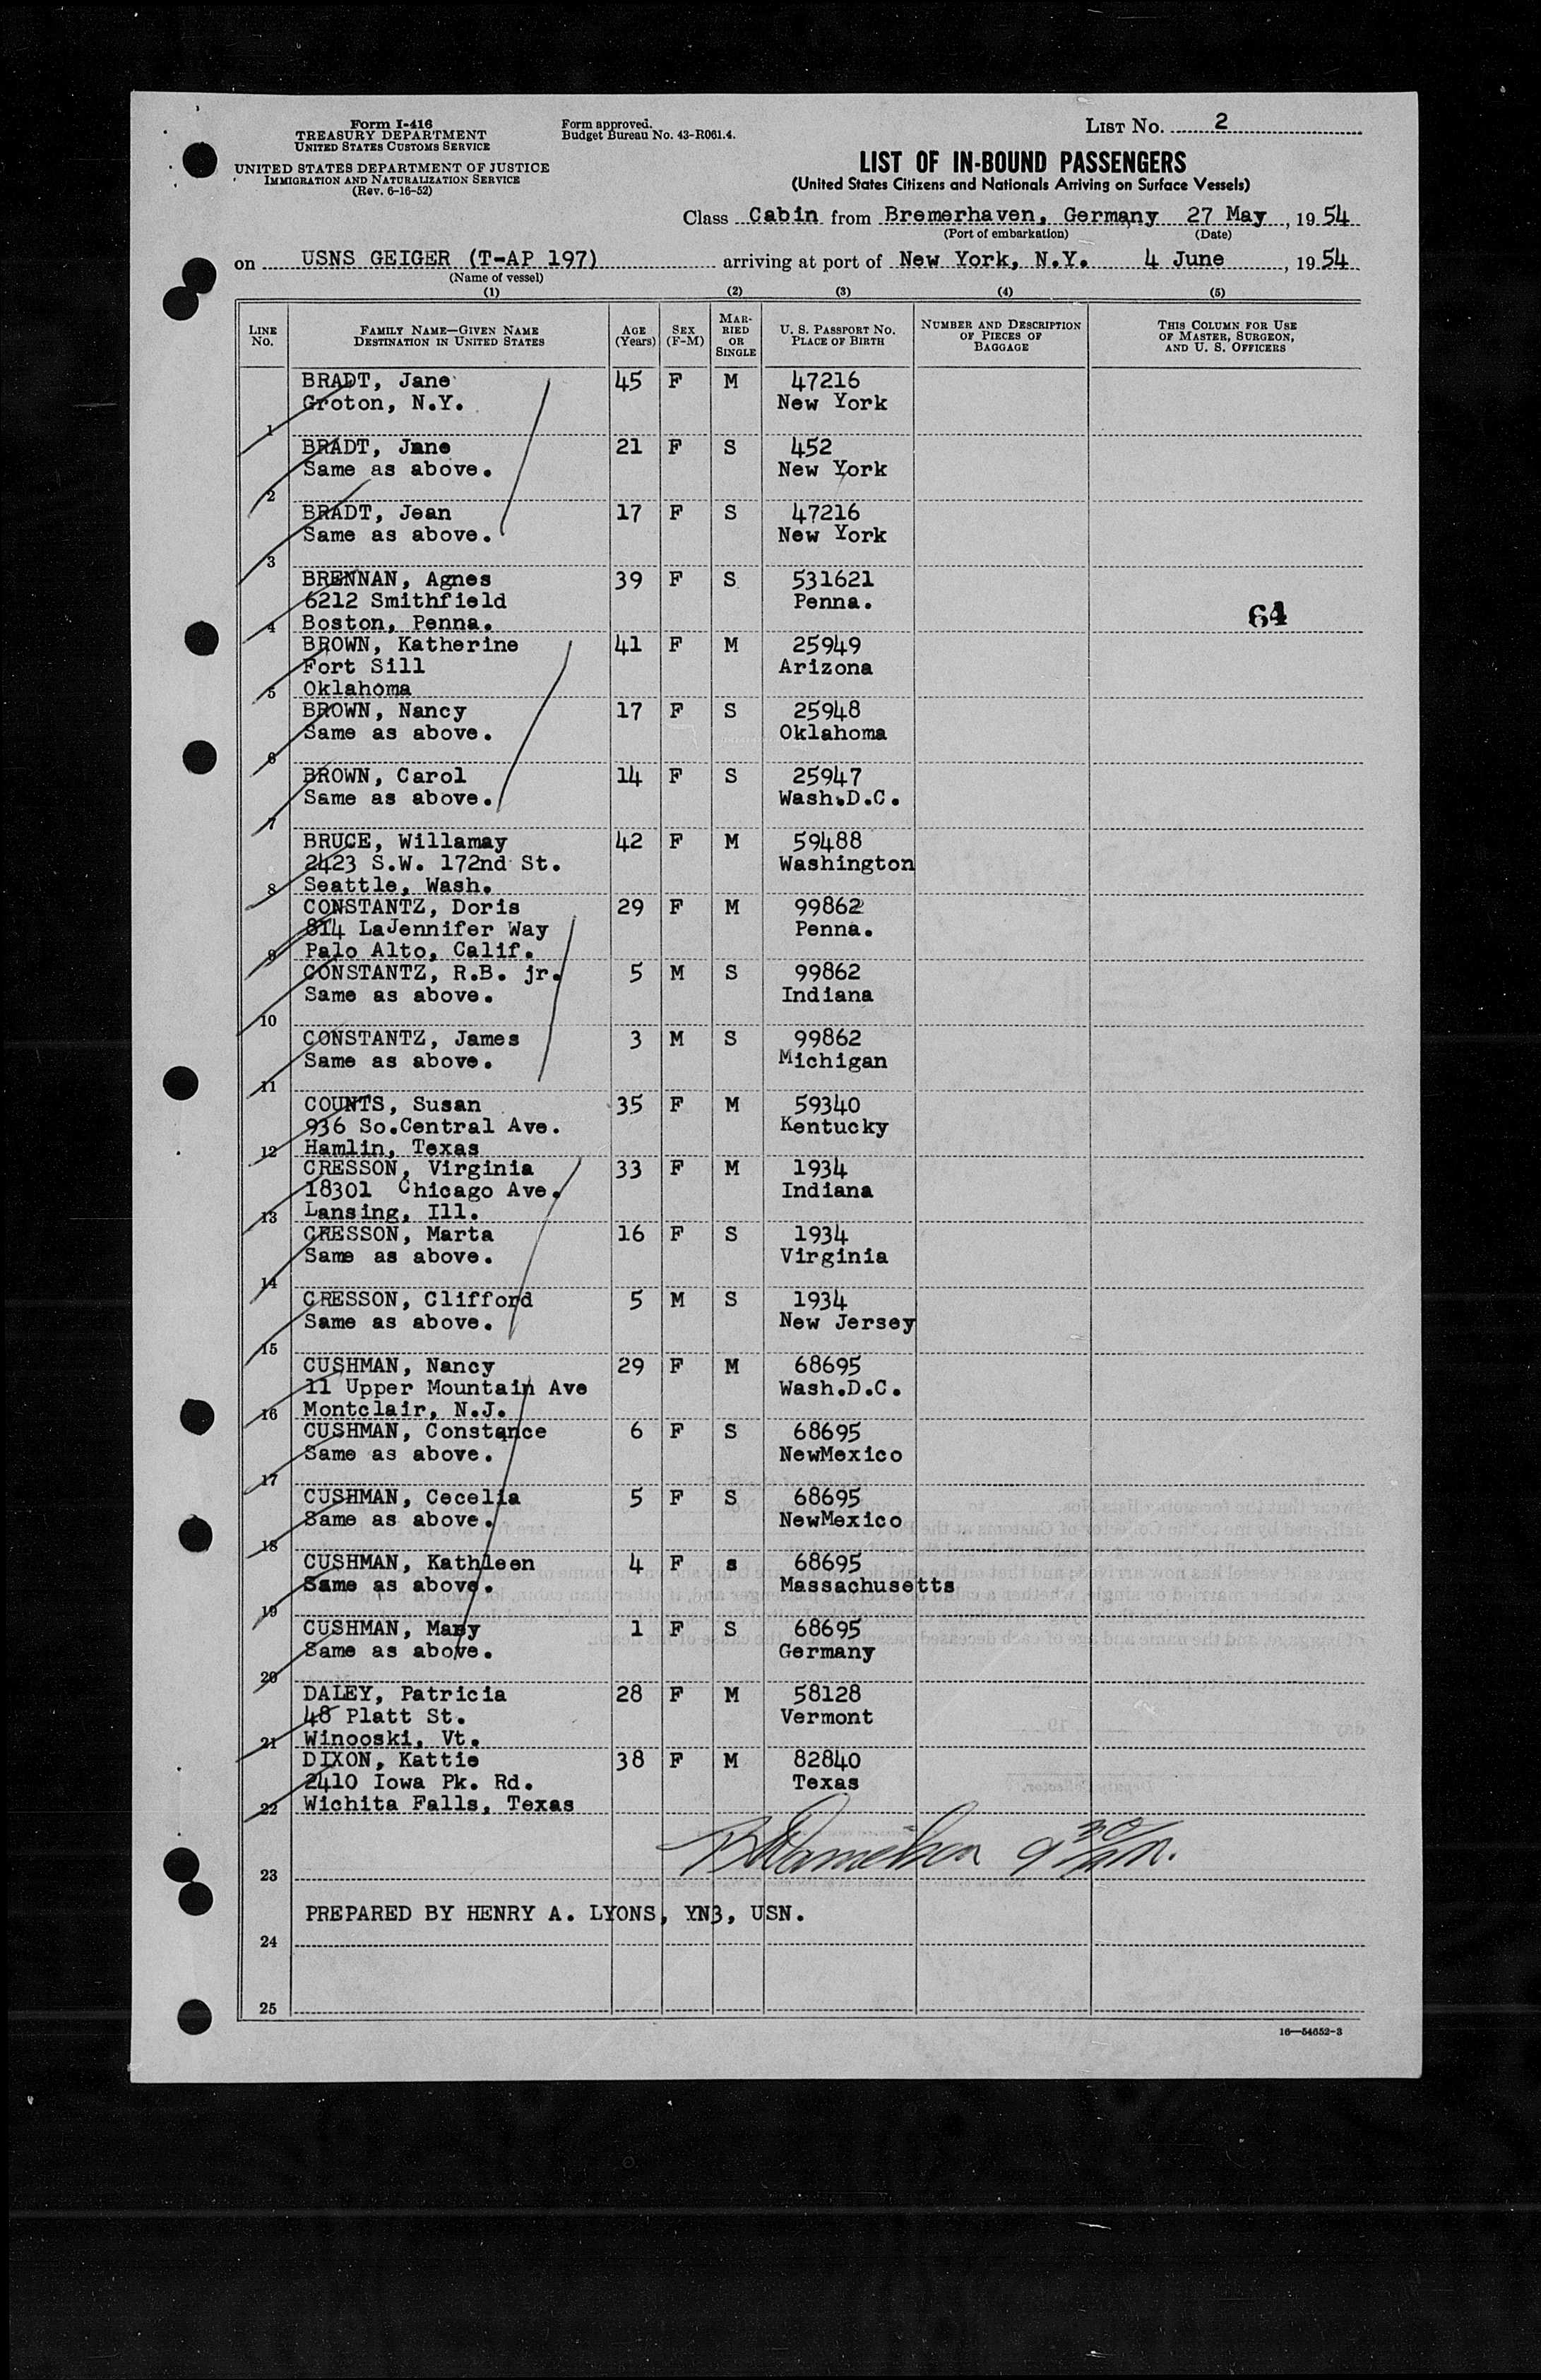 Form I-416
TREASURY DEPARTMENT
UNITED STATES CUSTOMS SERVICE
UNITED STATES DEPARTMENT OF JUSTICE
IMMIGRATION AND NATURALIZATION SERVICE
(Rev. 6-16-52)
Form approved.
Budget Bureau No. 43-R061.4.
LIST No. 2
LIST OF IN-BOUND PASSENGERS
(United States Citizens and Nationals Arriving on Surface Vessels)
Class Cabin from Bremerhaven, Germany 27 May, 1954
(Port of embarkation) (Date)
on USNS GEIGER (T-AP 197) arriving at port of New York, N.Y. 4 June, 1954
(Name of vessel)
(1) (2) (3) (4) (5)
LINE NO. FAMILY NAME—GIVEN NAME DESTINATION IN UNITED STATES AGE (Years) SEX (F-M) MARRIED OR SINGLE U. S. PASSPORT NO. PLACE OF BIRTH NUMBER AND DESCRIPTION OF PIECES OF BAGGAGE THIS COLUMN FOR USE OF MASTER, SURGEON, AND U. S. OFFICERS
BRADT, Jane 45 F M 47216
Groton, N.Y. New York
1
BRADT, Jane 21 F S 452
Same as above. New York
2
BRADT, Jean 17 F S 47216
Same as above. New York
3
BRENNAN, Agnes 39 F S 531621
6212 Smithfield Penna.
4 Boston, Penna. 64
BROWN, Katherine 41 F M 25949
Fort Sill Arizona
5 Oklahoma
BROWN, Nancy 17 F S 25948
Same as above. Oklahoma
6
BROWN, Carol 14 F S 25947
Same as above. Wash.D.C.
7
BRUCE, Willamay 42 F M 59488
2423 S.W. 172nd St. Washington
8 Seattle, Wash.
CONSTANTZ, Doris 29 F M 99862
814 LaJennifer Way Penna.
9 Palo Alto, Calif.
CONSTANTZ, R.B. jr. 5 M S 99862
Same as above. Indiana
10
CONSTANTZ, James 3 M S 99862
Same as above. Michigan
11
COUNTS, Susan 35 F M 59340
936 So.Central Ave. Kentucky
12 Hamlin, Texas
CRESSON, Virginia 33 F M 1934
18301 Chicago Ave. Indiana
13 Lansing, Ill.
CRESSON, Marta 16 F S 1934
Same as above. Virginia
14
CRESSON, Clifford 5 M S 1934
Same as above. New Jersey
15
CUSHMAN, Nancy 29 F M 68695
11 Upper Mountain Ave Wash.D.C.
16 Montclair, N.J.
CUSHMAN, Constance 6 F S 68695
Same as above. NewMexico
17
CUSHMAN, Cecelia 5 F S 68695
Same as above. NewMexico
18
CUSHMAN, Kathleen 4 F s 68695
Same as above. Massachusetts
19
CUSHMAN, Mary 1 F S 68695
Same as above. Germany
20
DALEY, Patricia 28 F M 58128
48 Platt St. Vermont
21 Winooski, Vt.
DIXON, Kattie 38 F M 82840
2410 Iowa Pk. Rd. Texas
22 Wichita Falls, Texas
23
PREPARED BY HENRY A. LYONS, YN3, USN.
24
25
16—54652-3